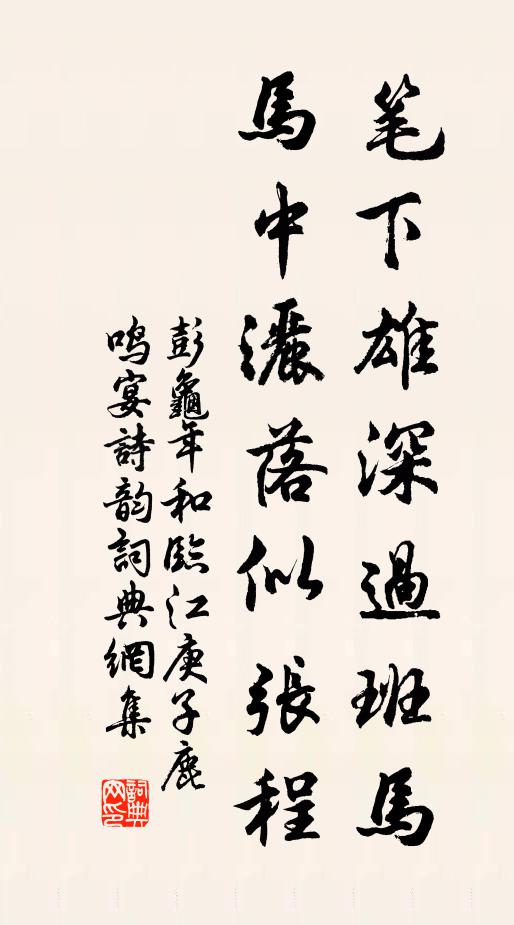 笔下雄深過班馬
馬中灑落似張程
彭龜年和臨江庚子鹿
鳴宴詩韵詞典網集
詞典网印